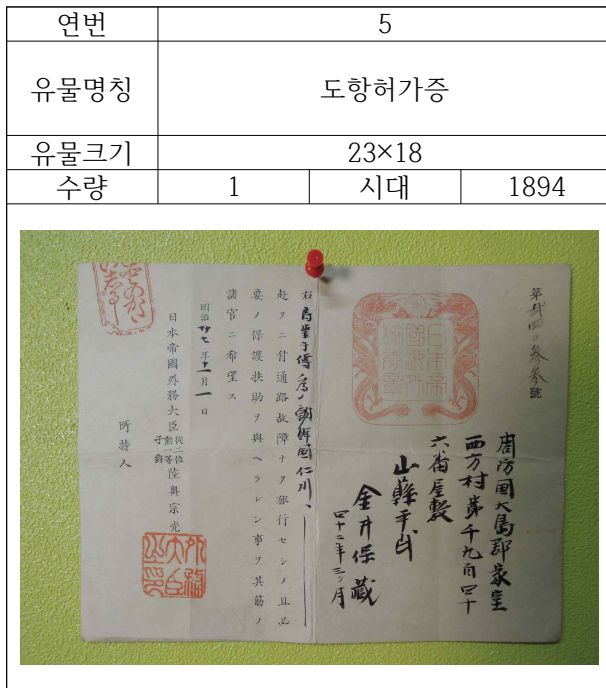 연번 5
유물명칭 도항허가증
유물크기 23×18
수량 1 시대 1894
日本帝國外務大臣之章
周防国大島郡家室
西方村第千九百四十
六番屋敷
山縣平民
金井保蔵
四十二年三ヶ月
右為業手傳為メ朝鮮國仁川
赴クニ付通路故障ナク旅行セシメ且必
要ノ保護扶助ヲ與ヘラレン事ヲ其筋ノ
諸官ニ希望ス
明治廿七年十一月一日
日本帝國外務大臣從二位勲一等子爵陸奥宗光
外務大臣之印
所持人